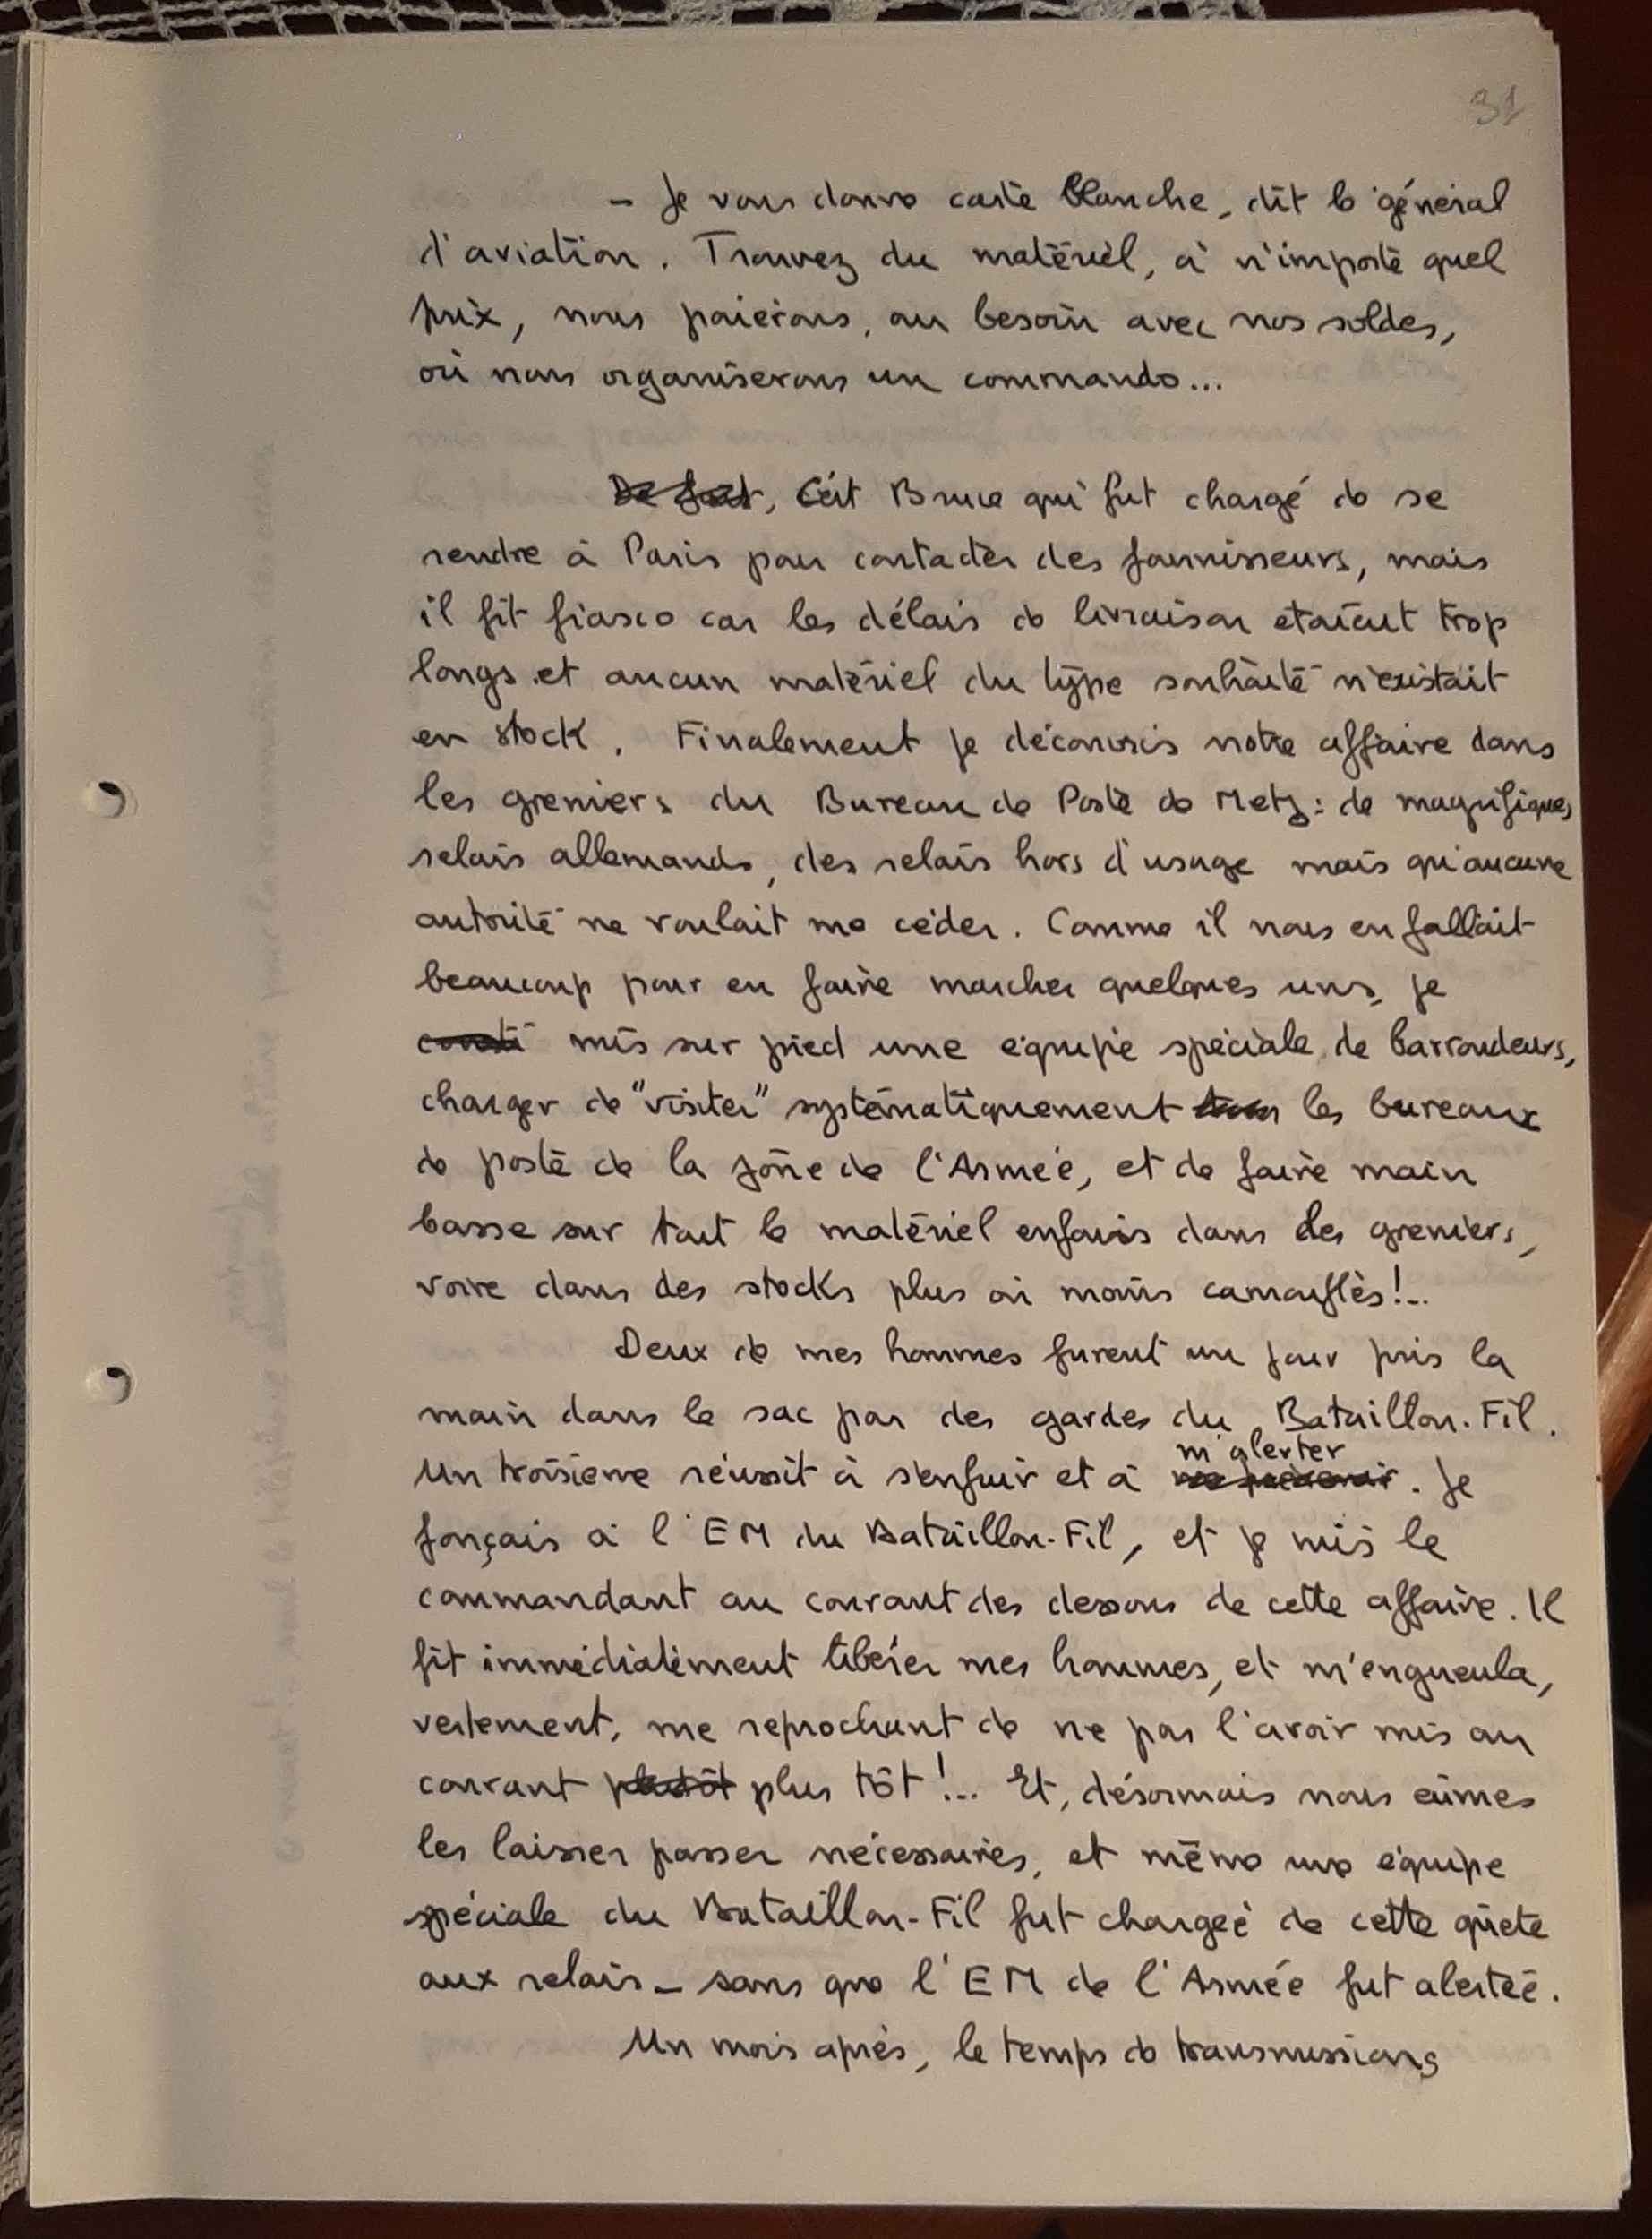 31
- Je vous donne carte blanche, dit le général
d'aviation. Trouvez du matériel, à n'importe quel
prix, nous paierons, au besoin avec nos soldes,
où nous organiserons un commando...
De fait, C'est Bruce qui fut chargé de se
rendre à Paris pour contacter des fournisseurs, mais
il fit fiasco car les délais de livraison étaient trop
longs et aucun matériel du type souhaité n'existait
en stock. Finalement je découvris notre affaire dans
les greniers du Bureau de Poste de Metz : de magnifiques
relais allemands, des relais hors d'usage mais qu'aucune
autorité ne voulait me céder. Comme il nous en fallait
beaucoup pour en faire marcher quelques uns, je
mis sur pied une équipe spéciale de barroudeurs,
charger de "visiter" systématiquement tous les bureaux
de poste de la zone de l'Armée, et de faire main
basse sur tout le matériel enfouis dans des greniers,
voire dans des stocks plus où moins camouflés !..
Deux de mes hommes furent un jour pris la
main dans le sac par des gardes du Bataillon-Fil.
m'alerter
Un troisième réussit à s'enfuir et à me prévenir. Je
fonçais à l'EM du Bataillon-Fil, et je mis le
commandant au courant des dessous de cette affaire. Il
fit immédiatement libérer mes hommes, et m'engueula,
vertement, me reprochant de ne pas l'avoir mis au
courant plutôt plus tôt !... Et, désormais nous eûmes
les laisser passer nécessaires, et même une équipe
spéciale du Bataillon-Fil fut chargée de cette quête
aux relais - sans que l'EM de l'Armée fut alertée.
Un mois après, le temps de transmissions